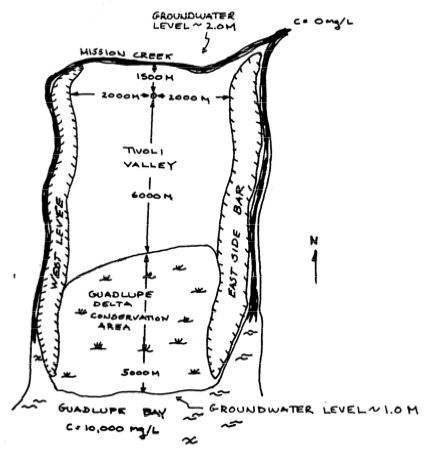 GROUNDWATER
LEVEL ~ 2.0 M
C = 0 mg/L
MISSION CREEK
1500 M
2000 M
2000 M
TIVOLI
VALLEY
6000 M
WEST LEVEE
EAST SIDE BAR
N
GUADLUPE
DELTA
CONSERVATION
AREA
5000 M
GUADLUPE BAY
C = 10,000 mg/L
GROUNDWATER LEVEL ~ 1.0 M